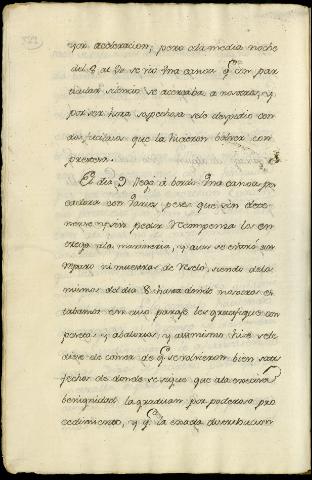 yor aceleracion; pero a la media noche
del 8 al 9 se vio una canoa q.e con par
ticular silencio se acercaba a nosotros, y
por ser hora sospechosa se la despidio con
dos fusilasos que la hicieron bolver con
presteza.
El dia 9 llegó à bordo una canoa pes
cadora con varios peses que sin dete
nerse y sin pedir recompensa los en
trego a la marineria, y aun se entró sin
reparo ni muestras de reselo, siendo de los
mismos del dia 8 hasta donde nosotros es
tabamos en cuio paraje les gratifique con
y abalorios, y assimismo hise se le
diese de comer de q.e se volvieron bien satis
fechos de donde se sigue que a la
benignidad la graduan por poderoso pro
cedimiento, y q.e la distribucion